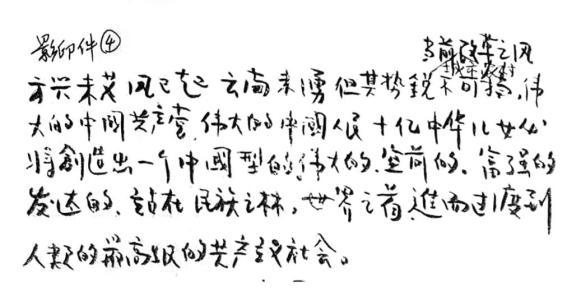 影印件④
当前改革之风
方兴未艾 风已起 云尚未涌 但其势锐不可挡,伟
大的中国共产党 伟大的中國人民 十亿中华儿女必
將創造出一个中國型的伟大的、空前的、富强的
发达的、站在民族之林,世界之首,進而过渡到
人类的最高级的共产主义社会。